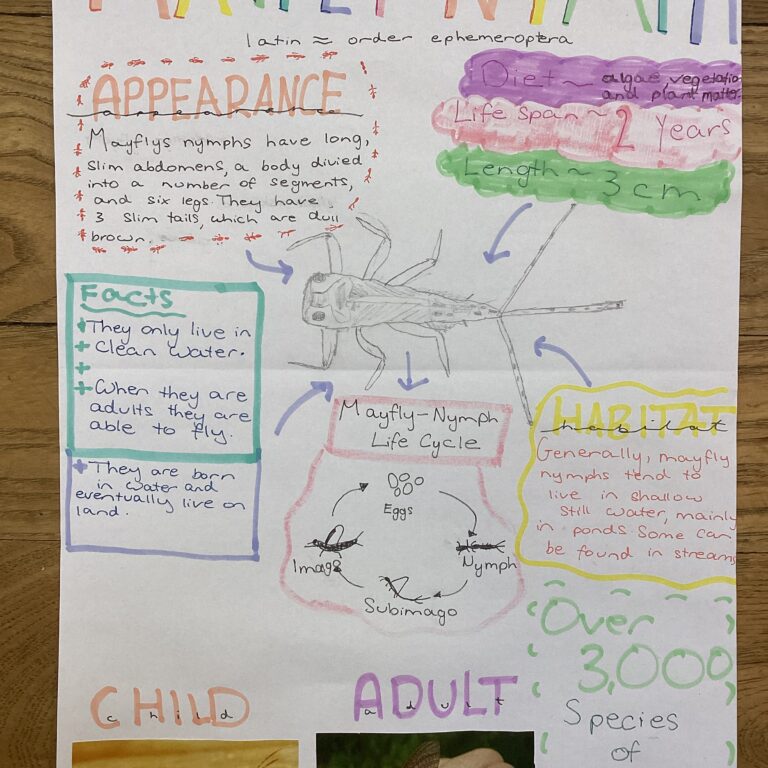 MAYFLY NYMPH
latin ≈ order ephemeroptera
APPEARANCE
appearance
Mayflys nymphs have long,
slim abdomens, a body divied
into a number of segments,
and six legs. They have
3 slim tails, which are dull
brown.
Diet ~ algae, vegetation
and plant matter.
Life span ~ 2 Years
Length ~ 3cm
Facts
They only live in
clean water.
When they are
adults they are
able to fly.
They are born
in water and
eventually live on
land.
Mayfly-Nymph
Life Cycle
Eggs
Nymph
Subimago
Imago
HABITAT
habitat
Generally, mayfly
nymphs tend to
live in shallow
still water, mainly
in ponds. Some can
be found in streams
Over
3,000
Species
of
CHILD
child
ADULT
adult